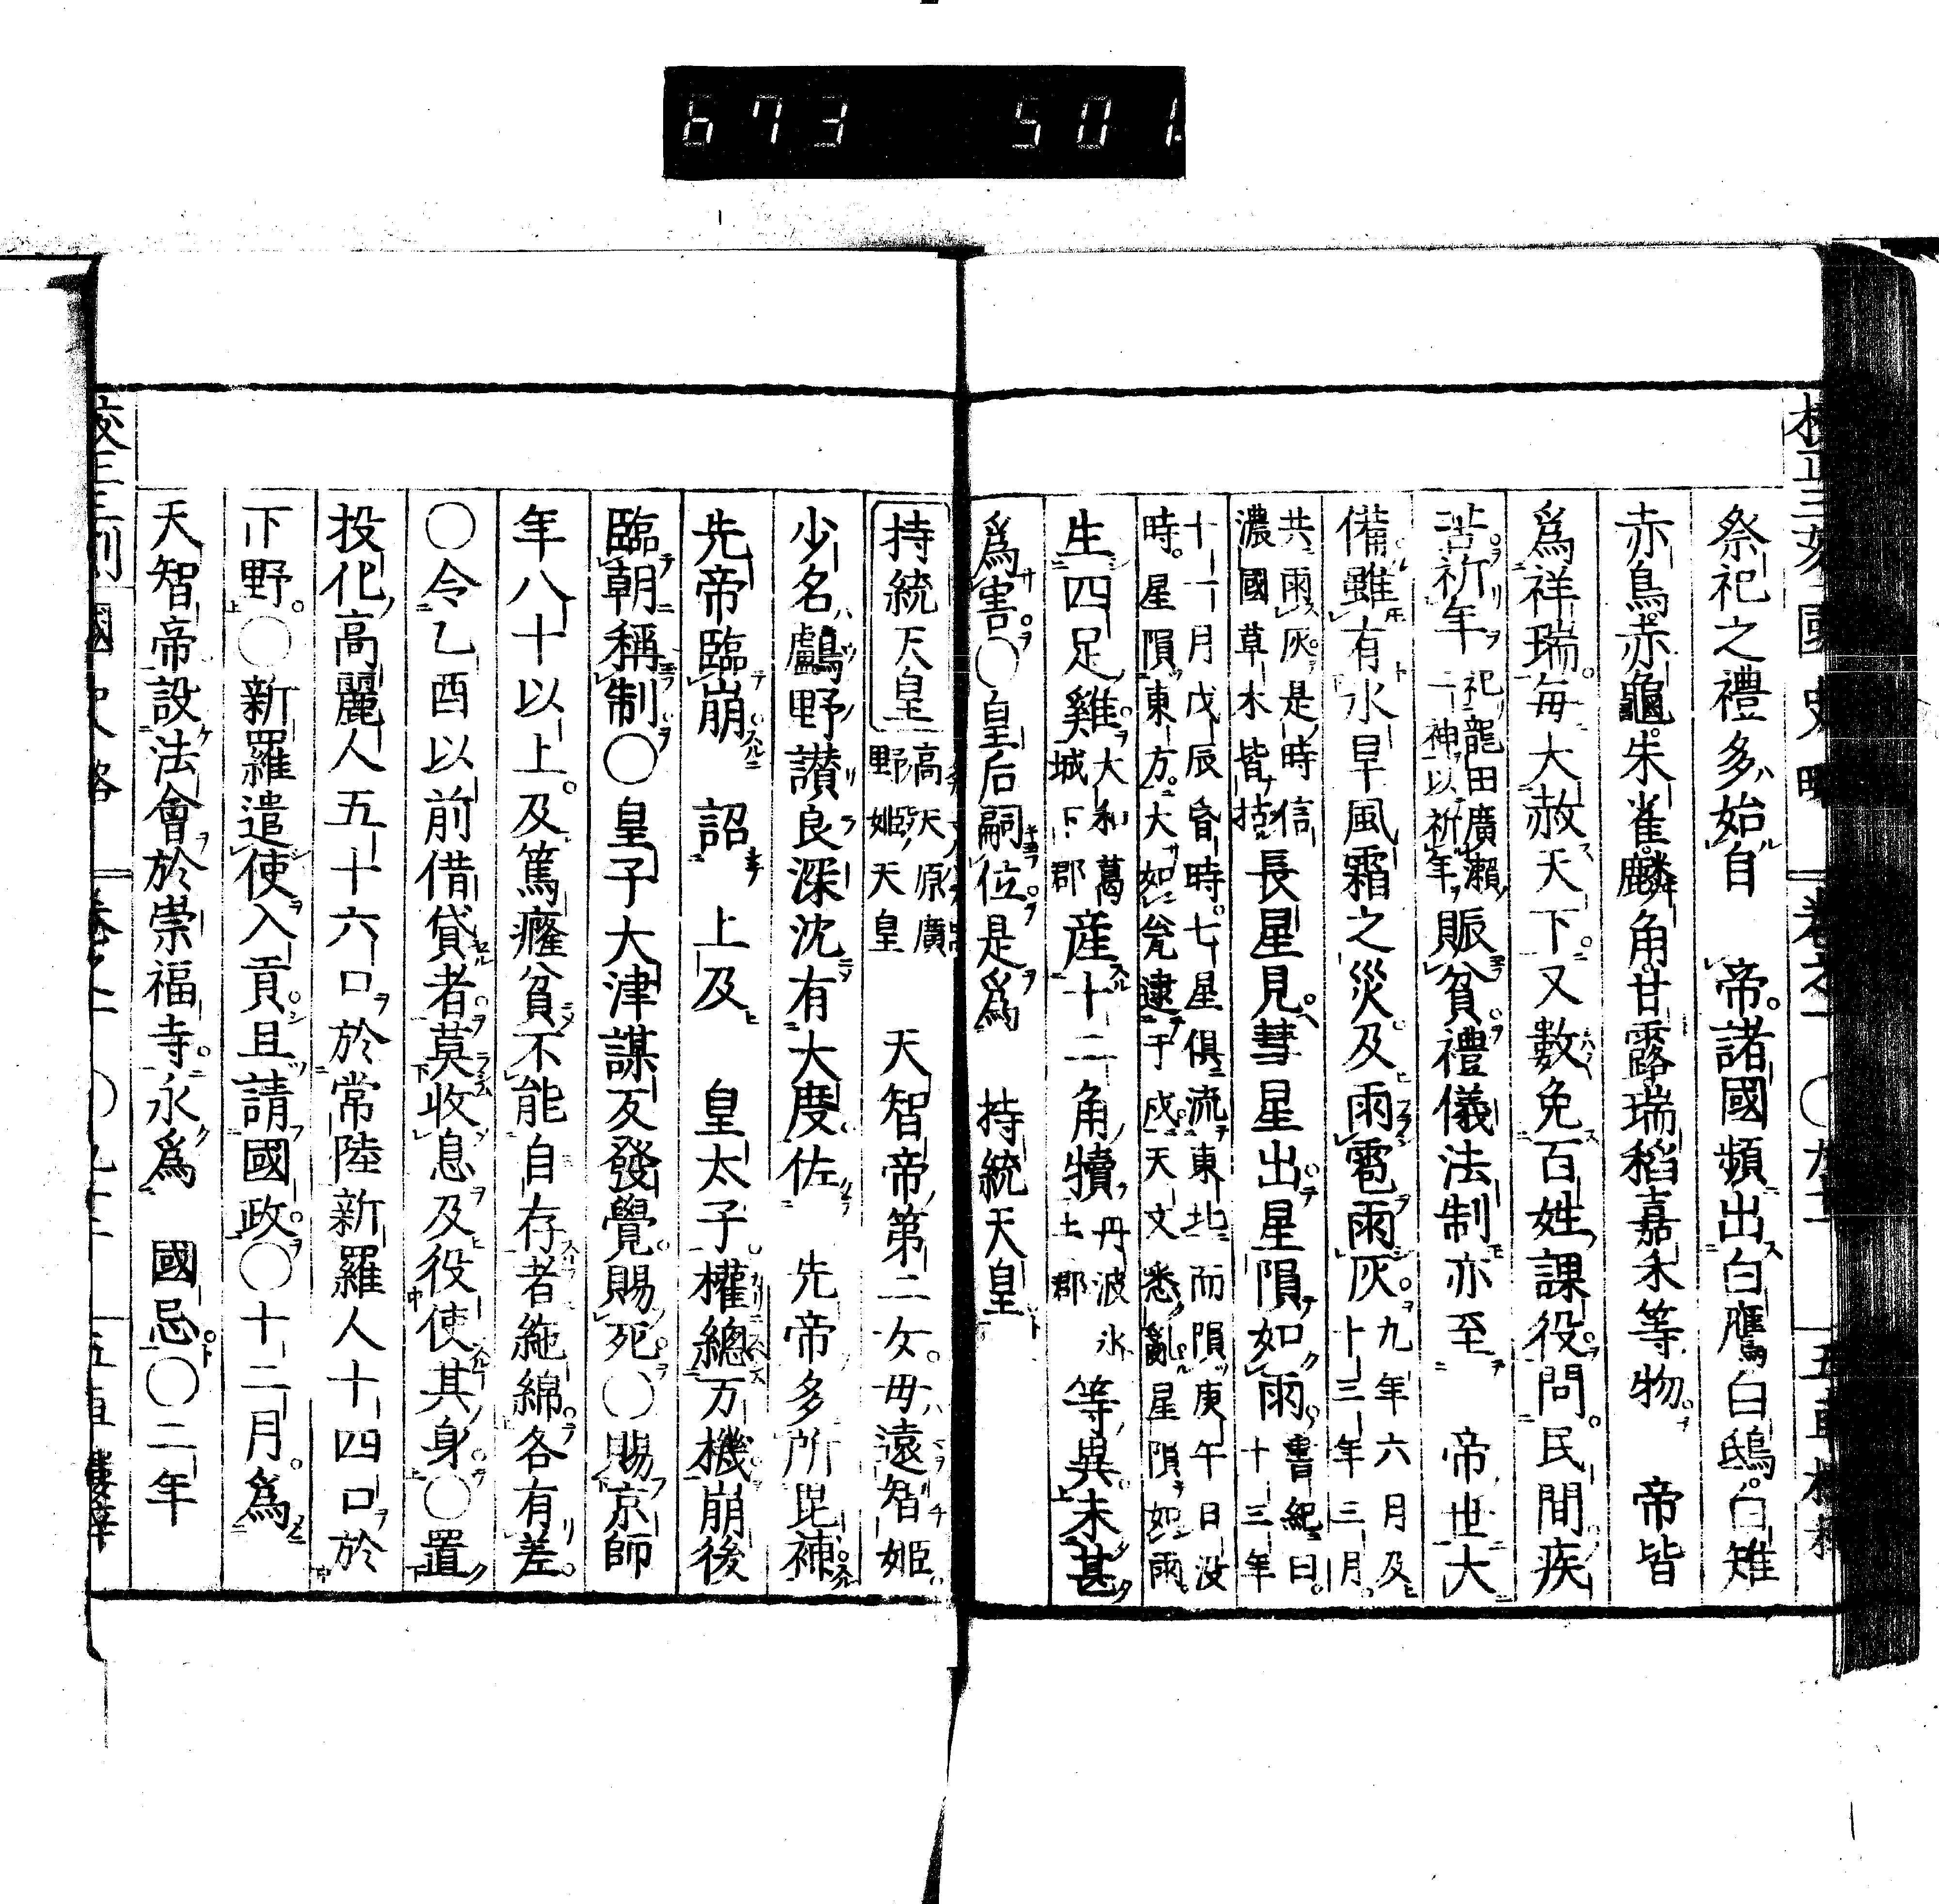 673 501
祭祀之禮多始自　帝。諸國頻出白鷹白鴟。白雉
赤烏赤龜。朱雀。麟角。甘露瑞稻嘉禾等物。　帝皆
爲祥瑞。毎大赦天下。又數免百姓課役。問民間疾
苦。祈年祀龍田廣瀬二神以祈年賑貧。禮儀法制亦至　帝世大
備。雖有水旱風霜之災。及雨雹雨灰。九年六月及十三年三月。
共雨灰。是時信濃國草木皆枯長星見。彗星出。星隕如雨。書紀曰。十三年
十一月戊辰昏時。七星倶流東北而隕。庚午日没時。星隕東方。大如瓮。逮于戌。天文悉亂。星隕如雨。
生四足雞。大和葛城下郡産十二角犢丹波氷上郡等異。未甚
爲害。〇皇后嗣位。是爲　持統天皇
持統天皇高天原廣野姫天皇　天智帝第二女。毋遠智姫。
少名鸕野讃良。深沈有大度。佐　先帝多所毘補。
先帝臨崩　詔　上及　皇太子權總万機。崩後
臨朝稱制〇皇子大津謀反發覺。賜死。〇賜京師
年八十以上。及篤癃貧不能自存者絁綿。各有差。
〇令乙酉以前借貸者。莫收息及役使其身。〇置
投化高麗人五十六口於常陸新羅人十四口於
下野。〇新羅遣使入貢。且請國政。〇十二月。爲
天智帝設法會於崇福寺。永爲　國忌。〇二年